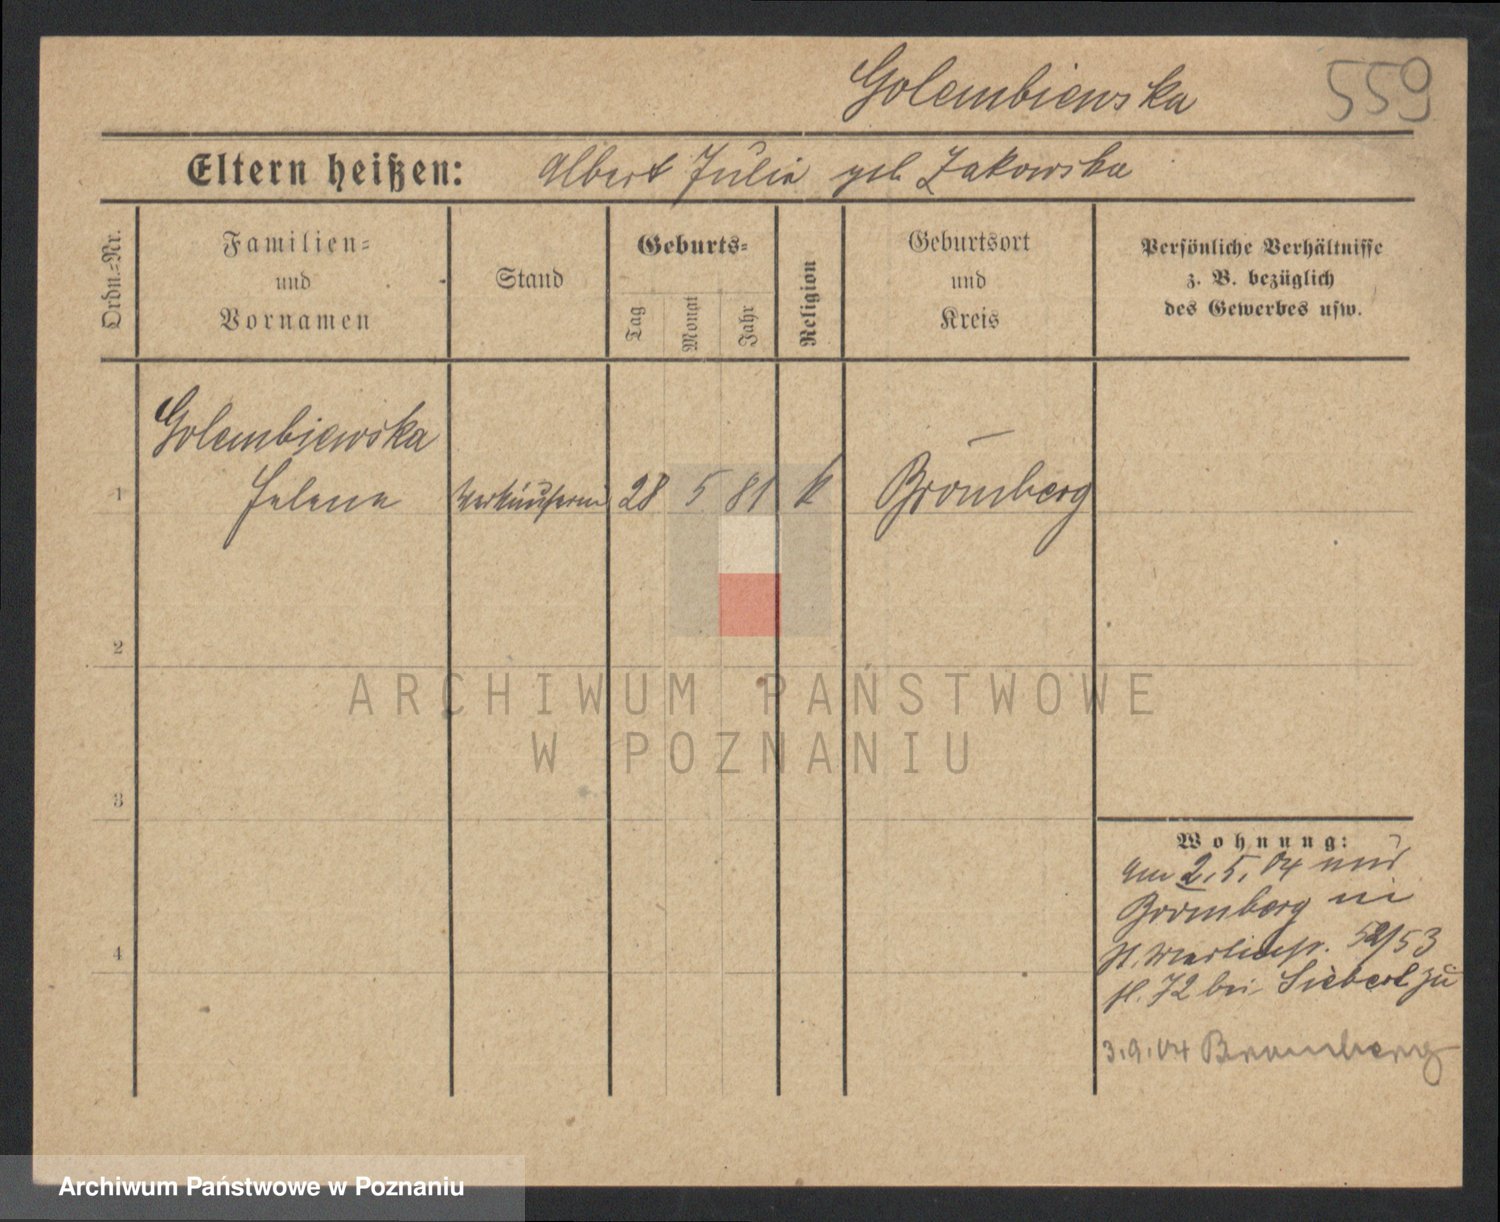 Golembiewska 559
Eltern heißen: Albert Julie geb. Zakowska
Ordn.=Nr.
Familien=
und
Vornamen
Stand
Geburts=
Tag
Monat
Jahr
Religion
Geburtsort
und
Kreis
Persönliche Verhältnisse
z. B. bezüglich
des Gewerbes usw.
Golembiewska
1 Helena Verkäuferin 28 5 81 k Bromberg
2
ARCHIWUM PAŃSTWOWE
W POZNANIU
3
Wohnung:
am 2.5.04 aus
Bromberg in
4 St. Martinstr. 52/53
fl. 72 bei Siebert zu
3.9.04 Bromberg
Archiwum Państwowe w Poznaniu